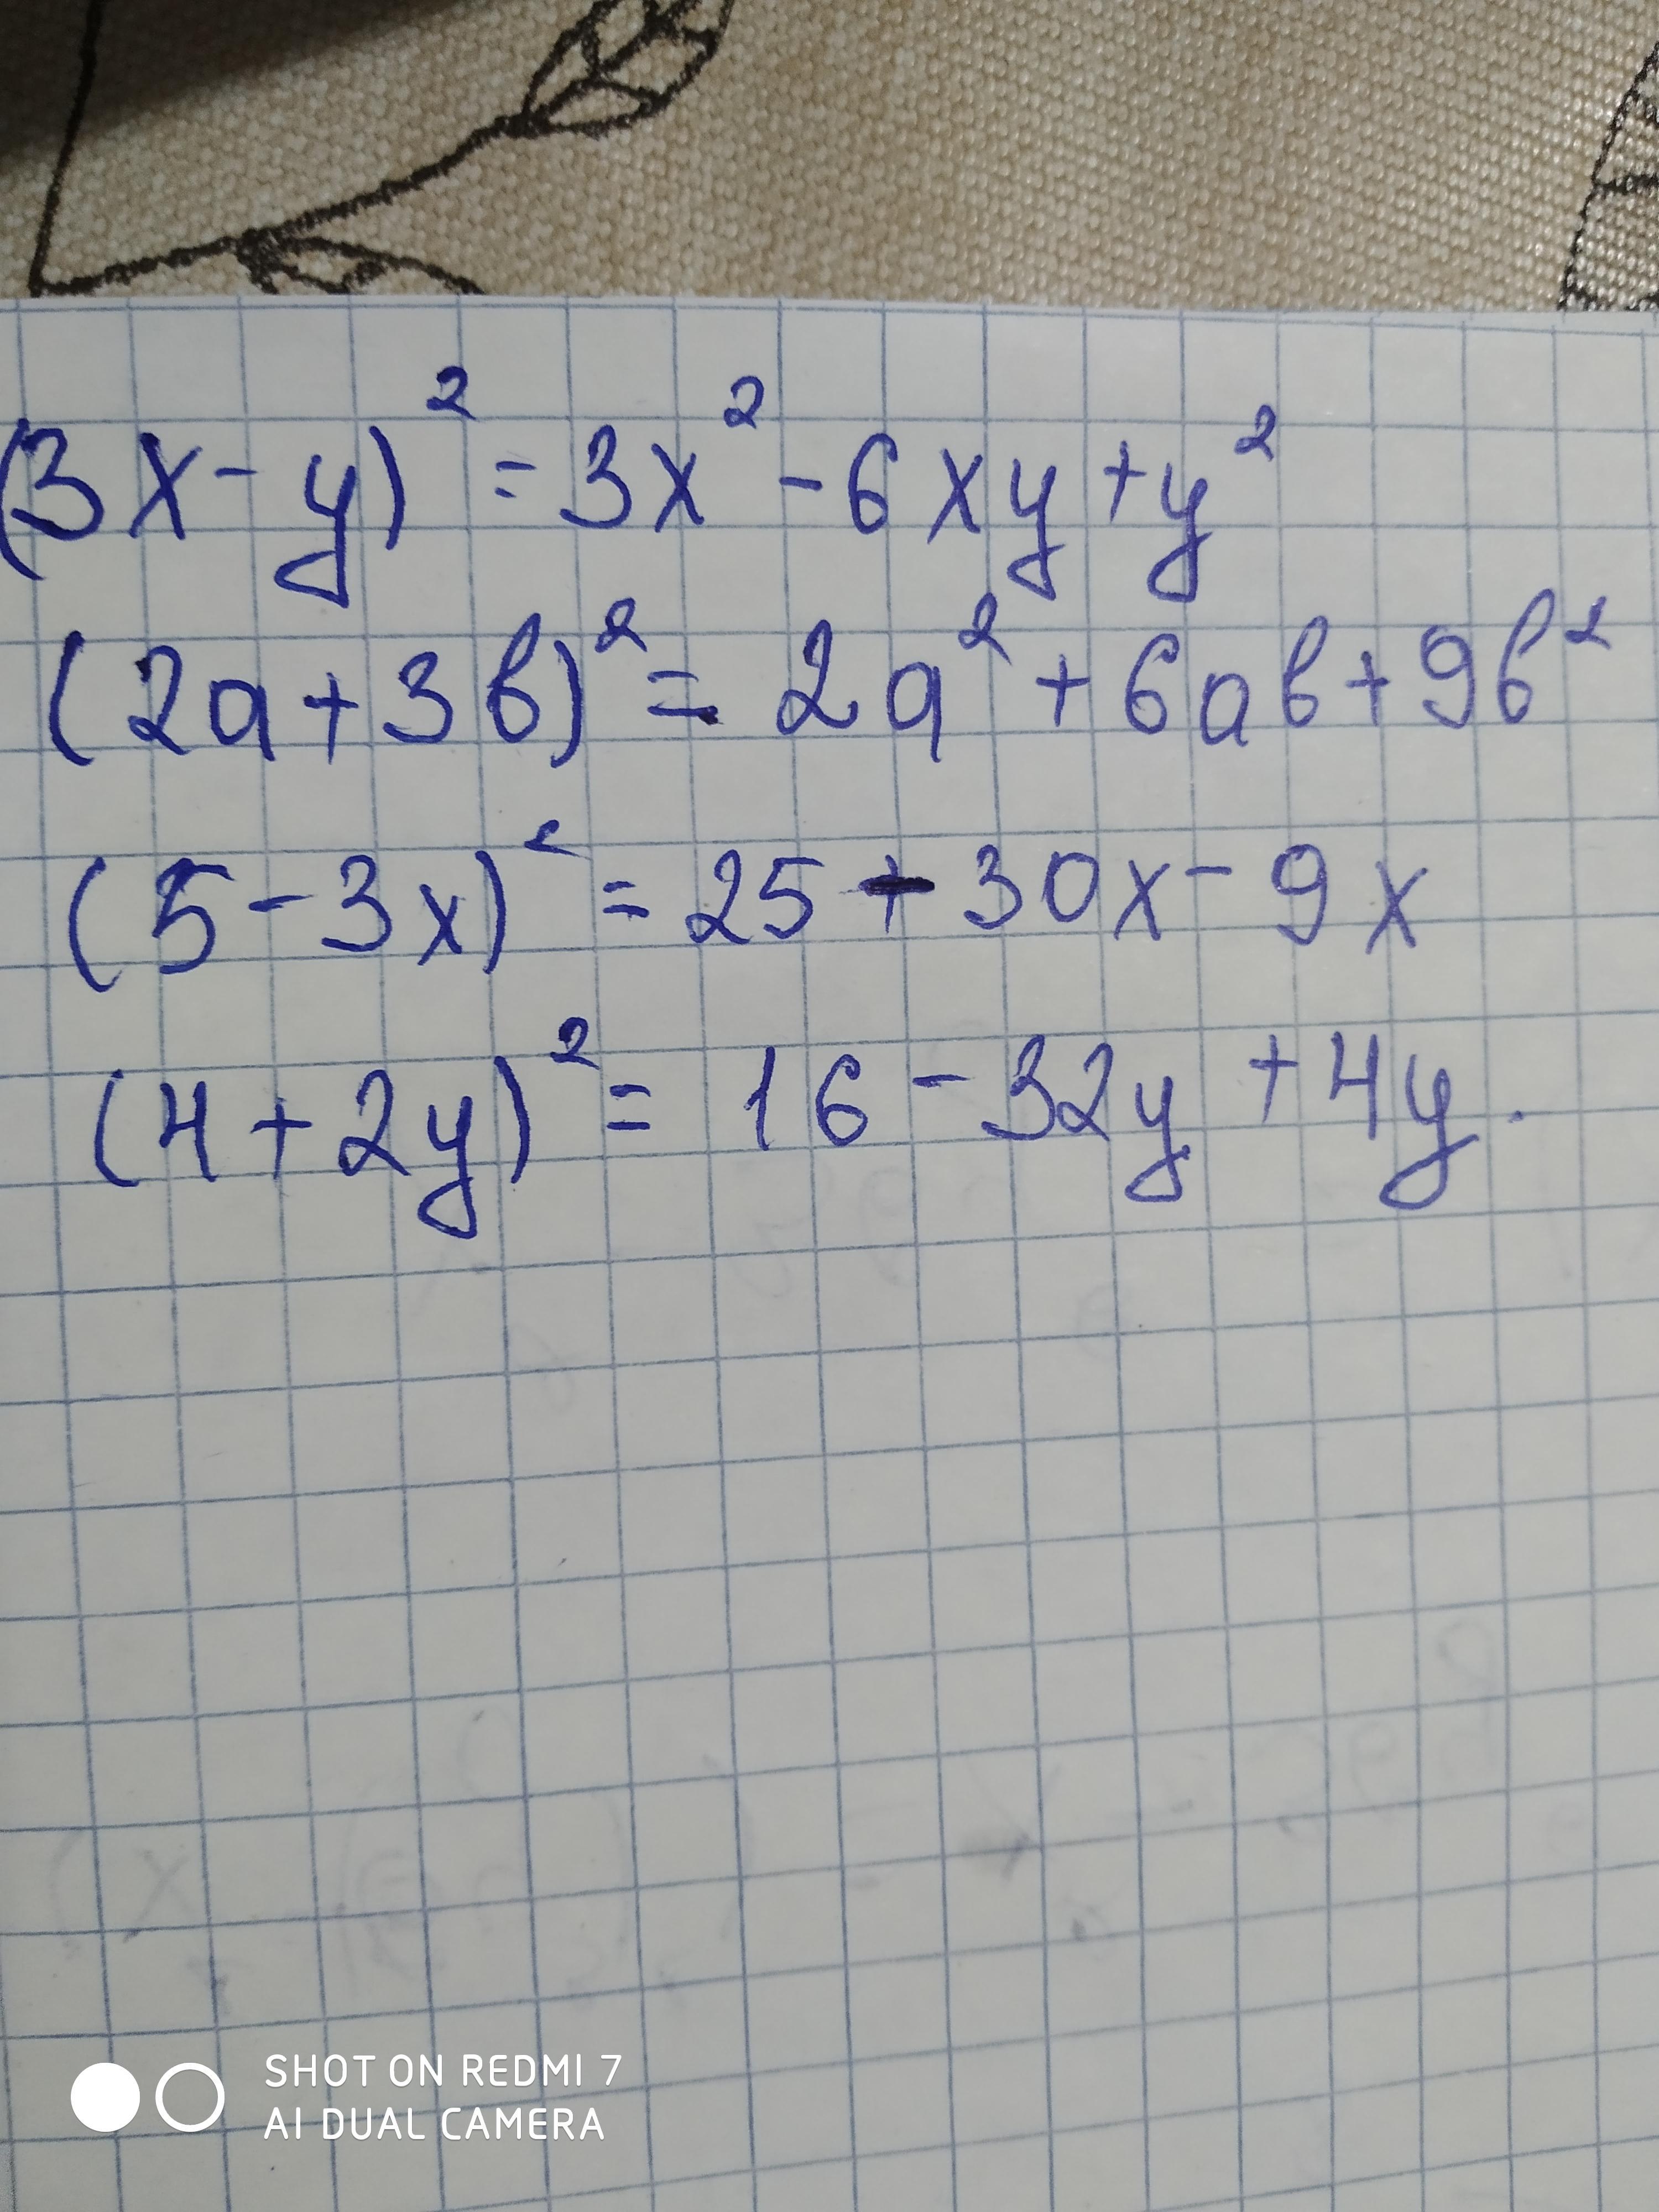 (3x-y)² = 3x² - 6xy + y²
(2a+3b)² = 2a² + 6ab + 9b²
(5-3x)² = 25 + 30x - 9x
(4+2y)² = 16 - 32y + 4y.
SHOT ON REDMI 7
AI DUAL CAMERA